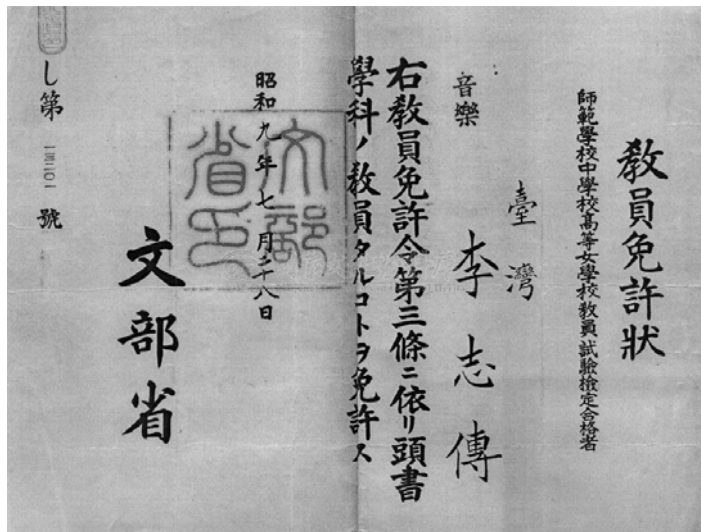 教員免許狀
師範學校中學校高等女學校教員試驗檢定合格者
臺灣
李志傳
音樂
右教員免許令第三條ニ依リ頭書
學科ノ教員タルコトヲ免許ス
昭和九年七月二十八日
文部省印
文部省
し第一三二〇一號